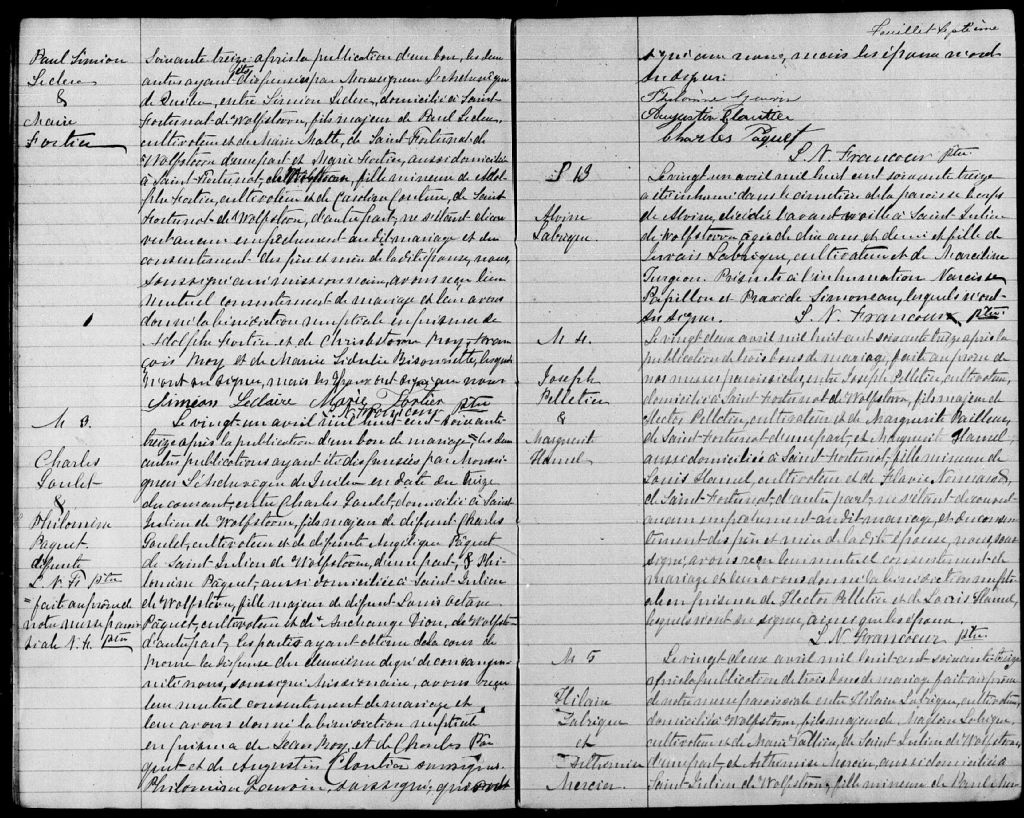 Paul Siméon
Leclerc
&
Marie
Fortier
Soixante treize après la publication d'un ban, les deux
autres ayant été dispensées par Monseigneur L'archevêque
de Québec, entre Siméon Leclerc, domicilié à Saint
Fortunat de Wolfstown, fils majeur de Paul Leclerc,
cultivateur et de Marie Matte, de Saint Fortunat de
Wolfstown d'une part et Marie Fortier, aussi domiciliée
à Saint Fortunat, de Wolfstown, fille mineure de Adol-
phe Fortier, cultivateur et de Caroline, de Saint
Fortunat de Wolfstown, d'autre part; ne s'étant décou
vert aucun empêchement au dit mariage et du
consentement des père et mère de la dite épouse, nous,
soussigné missionnaire, avons reçu leur
mutuel consentement de mariage et leur avons
donné la bénédiction nuptiale en présence de
Adolphe Fortier et de Roy, Fran
çois Roy et de Marie Bissonnette, lesquels
n'ont su signer, mais les époux ont signé avec nous
Siméon Leclaire Marie Fortier
L. N. Francoeur ptre
M 3.
Charles
Goulet
&
Philomène
Paquet.
L. N. F. ptre
= fait au prône de
notre messe parois
siale N. F. ptre
Le vingt un avril mil huit cent soixante
treize après la publication d'un ban de mariage, = les deux
autres publications ayant été dispensées par Monsei-
gneur L'archevêque de Québec en date du treize
du courant, entre Charles Goulet, domicilié à Saint
Julien de Wolfstown, fils majeur de défunt Charles
Goulet, cultivateur et de défunte Angélique Paquet
de Saint Julien de Wolfstown, d'une part, & Phi-
lomène Paquet, aussi domiciliée à Saint Julien
de Wolfstown, fille majeur de défunt Louis Octave
Paquet, cultivateur et de Archange Dion, de Wolfsto
d'autre part; les parties ayant obtenu de la cour de
Rome la dispense du deuxième degré de consangui-
nité nous, soussigné Missionnaire, avons reçu
leur mutuel consentement de mariage et
leur avons donné la bénédiction nuptiale
en présence de Jean Roy et de Charles Pa
quet et de Augustin Cloutier soussignés
Philomène soussigné; qui ont
Feuillet Septième
signé avec nous, mais les époux n'ont
su signer.
Philomène
Cloutier
Charles Paquet
L. N. Francoeur ptre.
S 13
Alvina
Labrique.
Le vingt un avril mil huit cent soixante treize
a été inhumé dans le cimetière de la paroisse le corps
de Alvina, décédée l'avant veille à Saint Julien
de Wolfstown âgée de dix ans et demi et fille de
Gervais Labrique, cultivateur et de Marcelline
Turgeon. Présents à l'inhumation Narcisse
Papillon et Praxède Simoneau, lesquels n'ont
su signer. L. N. Francoeur ptre.
M 4.
Joseph
Pelletier
&
Marguerite
Hamel
Le vingt deux avril mil huit cent soixante treize après la
publication de trois bans de mariage, fait au prône de
nos messes paroissiales, entre Joseph Pelletier, cultivateur,
domicilié à Saint Fortunat de Wolfstown, fils majeur de
Hector Pelletier, cultivateur et de Marguerite,
de Saint Fortunat d'une part, et Marguerite Hamel,
aussi domiciliée à Saint Fortunat, fille mineure de
Louis Hamel, cultivateur et de Flavie,
de Saint Fortunat, d'autre part; ne s'étant découvert
aucun empêchement au dit mariage, et du consen-
tement des père et mère de la dite épouse, nous, sous-
signé, avons reçu leur mutuel consentement de
mariage et leur avons donné la bénédiction nuptia
le en présence de Hector Pelletier et de Louis Hamel,
lesquels n'ont su signer, ainsi que les époux.
L. N. Francoeur ptre.
M 5
Hilaire
Labrique
et
Arthémise
Mercier.
Le vingt deux avril mil huit cent soixante treize
après la publication de trois bans de mariage fait au prône
de notre messe paroissiale entre Hilaire Labrique, cultivateur,
domicilié à Wolfstown, fils majeur de Magloire Labrique,
cultivateur et de Marie Vallière, de Saint Julien de Wolfstown,
d'une part, et Arthémise Mercier, aussi domiciliée à
Saint Julien de Wolfstown, fille mineure de Paul Mer